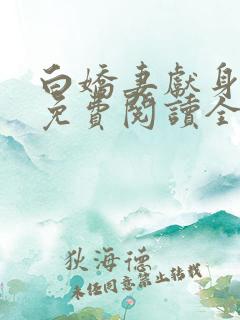 白嬌妻獻身
免費閱讀全
狄海德
未經同意禁止轉載